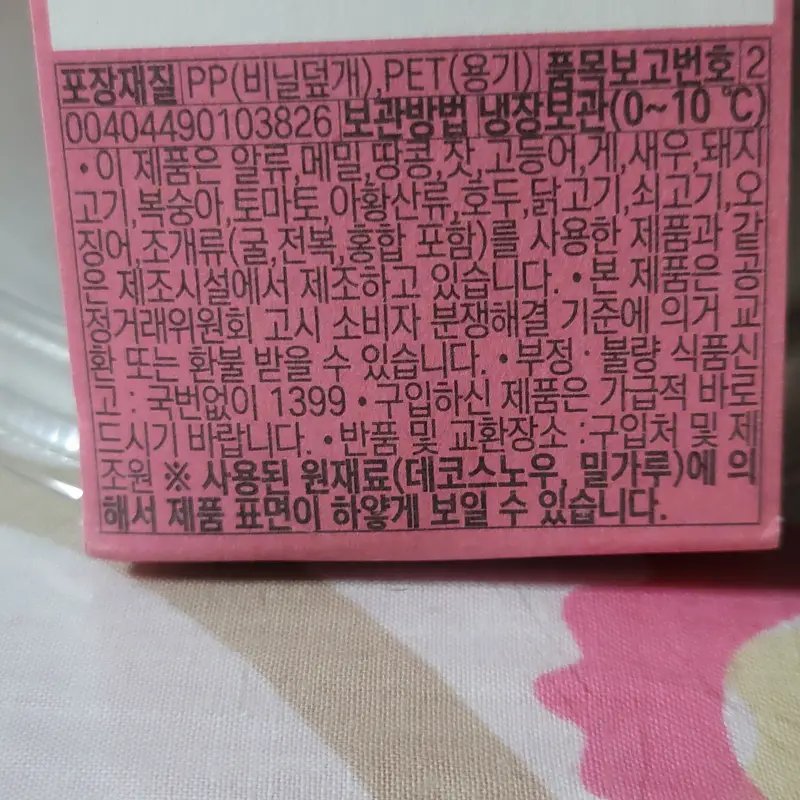 포장재질 PP(비닐덮개),PET(용기) 품목보고번호 2
00404490103826 보관방법 냉장보관(0~10 ℃)
•이 제품은 알류,메밀,땅콩,잣,고등어,게,새우,돼지
고기,복숭아,토마토,아황산류,호두,닭고기,쇠고기,오
징어,조개류(굴,전복,홍합 포함)를 사용한 제품과 같
은 제조시설에서 제조하고 있습니다. •본 제품은 공
정거래위원회 고시 소비자 분쟁해결 기준에 의거 교
환 또는 환불 받을 수 있습니다. •부정 · 불량 식품신
고 : 국번없이 1399 •구입하신 제품은 가급적 바로
드시기 바랍니다. •반품 및 교환장소 :구입처 및 제
조원 ※ 사용된 원재료(데코스노우, 밀가루)에 의
해서 제품 표면이 하얗게 보일 수 있습니다.